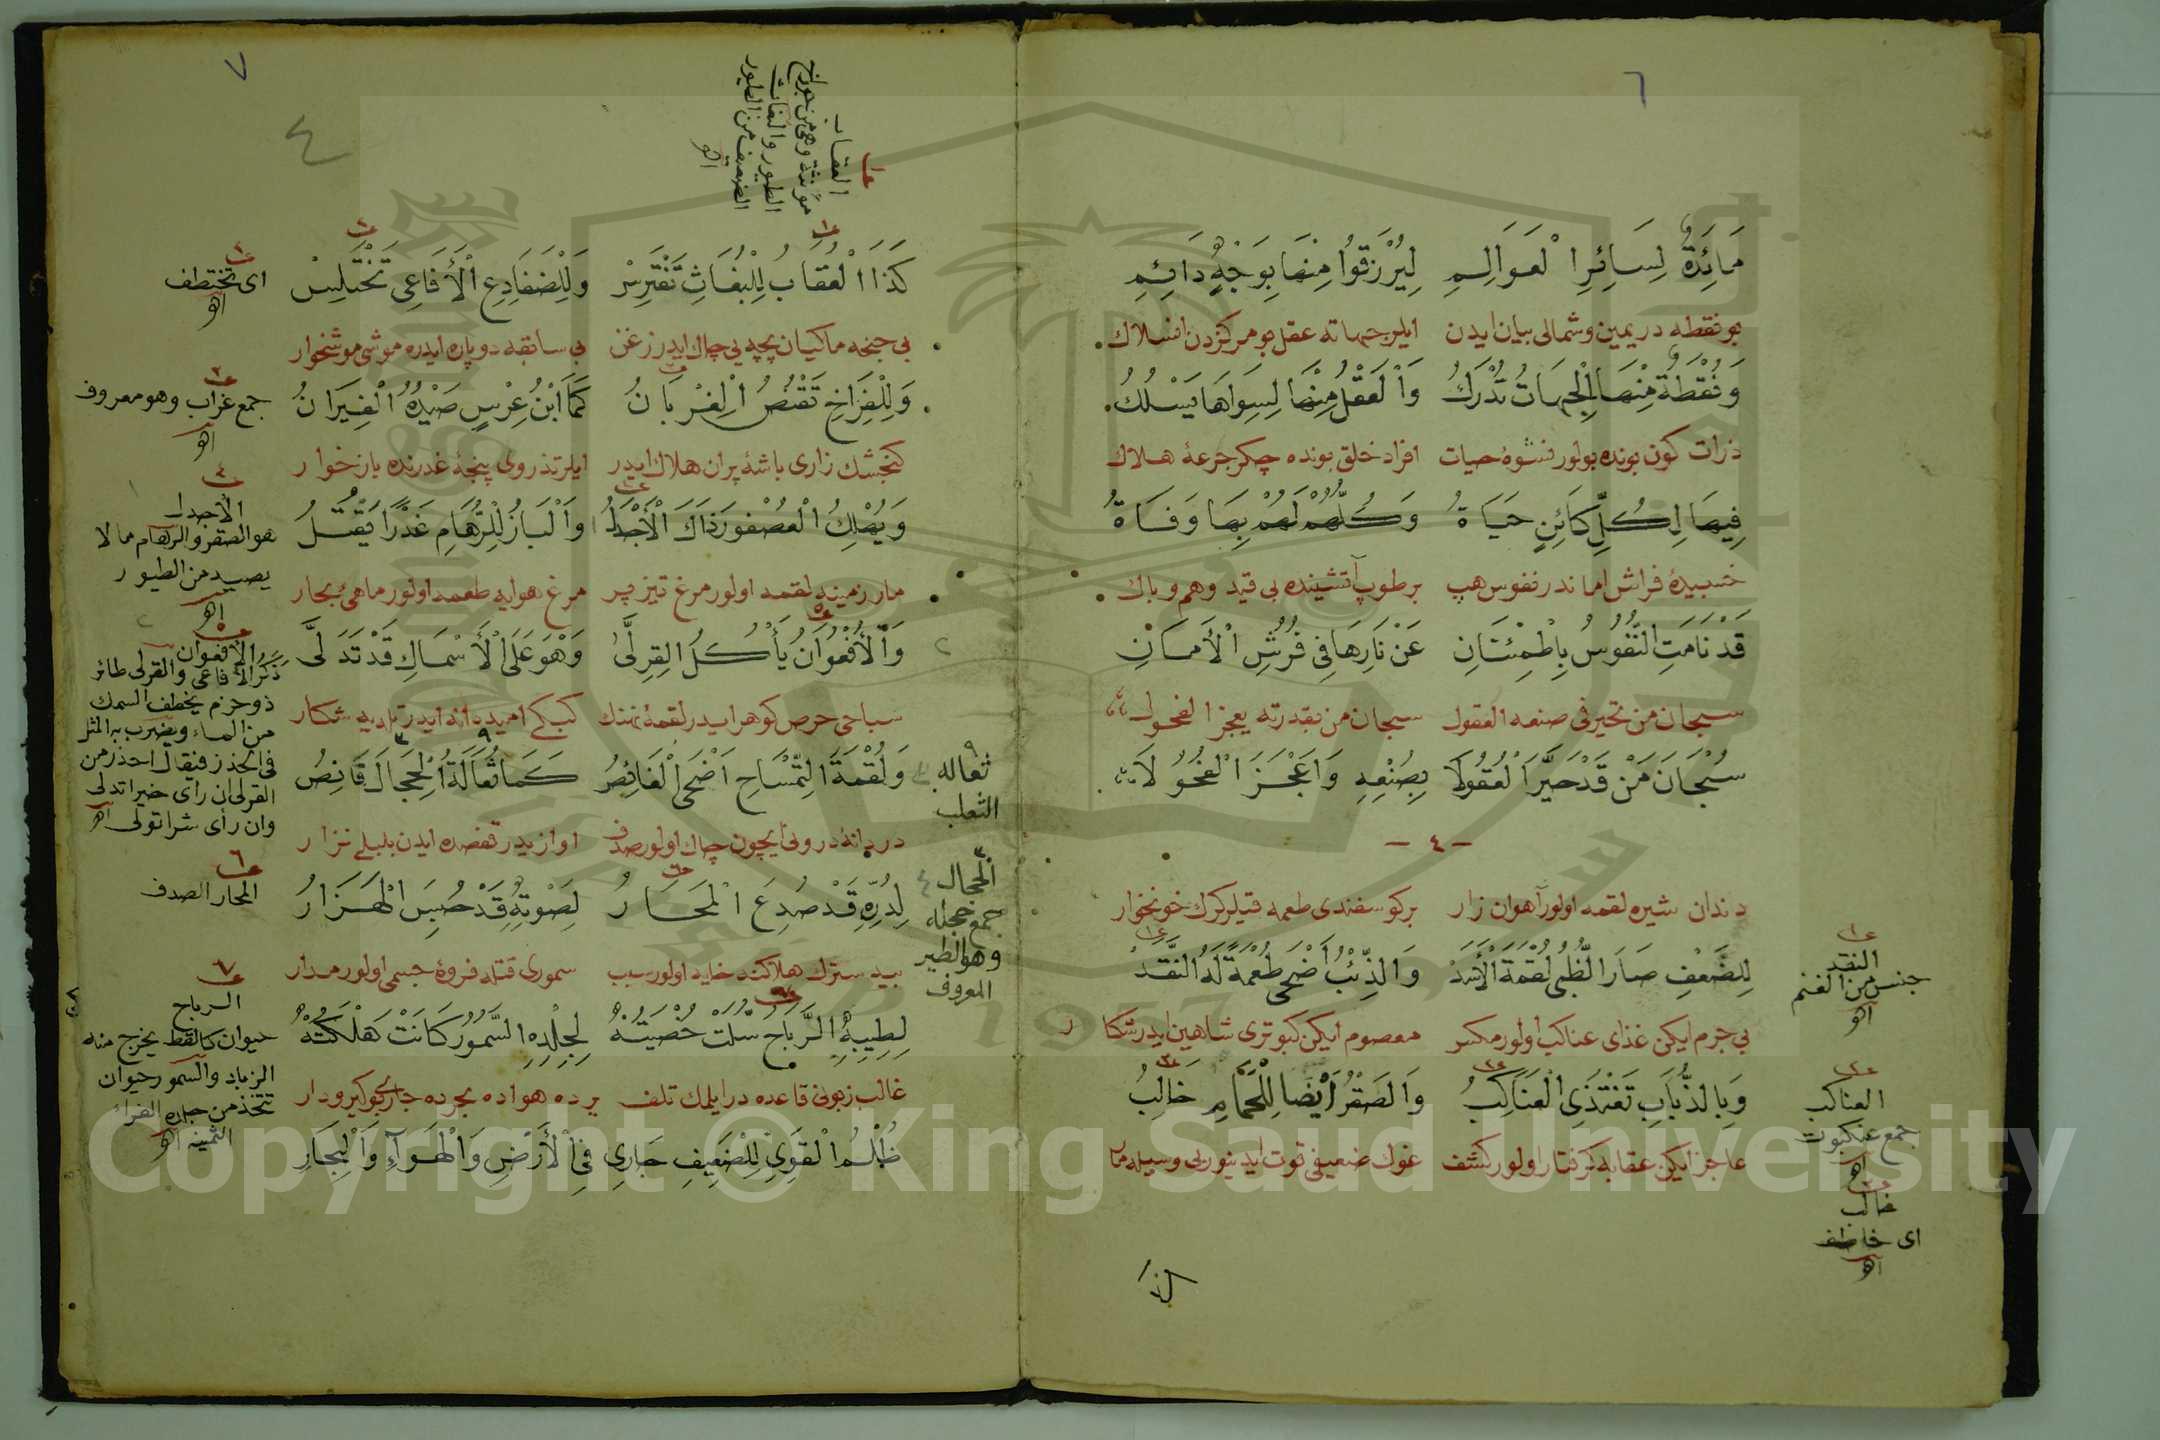 ٦
مَائِدَةٌ لِسَائِرِ الْعَوَالِمِ لِيُرْزَقُوا مِنْهَا بِوَجْهٍ دَائِمِ
بو نقطه در يمين وشمالى بيان ايدن ايلر جهاته عقل بو مركزدن انسلاك
وَنُقْطَةٌ مِنْهَا الْجِهَاتُ تُدْرَكُ وَالْعَقْلُ مِنْهَا لِسِوَاهَا يَسْلُكُ
ذرات كون بونده بولور نشوهٔ حيات افراد خلق بونده چكر جرعهٔ هلاك
فِيهَا لِكُلِّ كَائِنٍ حَيَاةُ وَكُلُّهُمْ لَهُمْ بِهَا وَفَاةُ
خسبيدهٔ فراش اماندر نفوس هپ بر طوپ آتشينده بى قيد وهم وباك
قَدْ نَامَتِ النُّفُوسُ بِاطْمِئْنَانِ عَنْ نَارِهَا فِى فُرُشِ الْأَمَانِ
سبحان من تحير فى صنعه العقول سبحان من بقدرته يعجز الفحول
سُبْحَانَ مَنْ قَدْ حَيَّرَ الْعُقُولَا بِصُنْعِهِ وَاَعْجَزَ الْفُحُولَا
- ٤ -
دندان شيره لقمه اولور آهوان زار بر كوسفندى طعمه قيلر كرك خونخوار
لِلضَّعْفِ صَارَ الظَّبْىُ لُقْمَةَ الْأَسَدْ وَالذِّئْبُ أَضْحَى طُعْمَةً لَهُ النَّقَدْ
بى جرم ايكن غذاى عناكب اولور مكس معصوم ايكن كبوترى شاهين ايدر شكار
وَبِالذُّبَابِ تَغْتَذِى الْعَنَاكِبُ وَالصَّقْرُ اَيْضًا لِلْحَمَامِ خَالِبُ
عاجز ايكن عقابه كرفتار اولور كشف
النقد
جنس من الغنم
اهـ
العناكب
جمع عنكبوت
اهـ
خالب
اى خاطف
اهـ
كذا
٧
٤
العقاب
مؤنثة وهى من جوارح
الطيور والبغاث
الضعيفة من الطيور
اهـ
كَذَا الْعُقَابُ لِلْبُغَاثِ تَفْتَرِسْ وَلِلضَّفَادِعِ الْأَفَاعِى تَخْتَلِسْ
بى جنحه ماكيان بچه يى چاك ايدر زغن بى سابقه دو پاره ايدر موشى موشخوار
وَلِلْفِرَاخِ تَقْنُصُ الْغِرْبَانُ كَمَا ابْنُ عِرْسٍ صَيْدُهُ الْفِيرَانُ
كنجشك زارى باشهٔ پران هلاك ايدر ايلر تذروى پنجهٔ غدرنده باز خوار
وَيُهْلِكُ الْعُصْفُورَ ذَاكَ الْأَجْدَلُ وَالْبَازُ لِلرَّهَامِ غَدْرًا يَقْتُلُ
مار زمينه لقمه اولور مرغ تيز پر مرغ هوايه طعمه اولور ماهئ بحار
وَالْأُفْعُوَانُ يَأْكُلُ الْقِرِلَّى وَهْوَ عَلَى الْأَسْمَاكِ قَدْ تَدَلَّى
سباحى حرص كوهر ايدر لقمهٔ نهنك
وَلُقْمَةَ التِّمْسَاحِ اَضْحَى الْغَائِصُ كَمَا ثُعَالَةُ الْحِجَالَ قَانِصُ
دردانهٔ درونى ايچون چاك اولور صدف اوازيدر قفصده ايدن بلبلى نزار
لِدُرِّهِ قَدْ صُدِعَ الْمَحَارُ لِصَوْتِهِ قَدْ حُبِسَ الْهَزَارُ
سمورى قتله فروهٔ جسمى اولور مدار
لِطِيبِهِ الرَّبَاحُ سُلَّتْ خُصْيَتُهْ لِجِلْدِهِ السَّمُّورُ كَانَتْ هَلْكَتُهْ
غالب زبونى قاعده در ايلمك تلف يرده هواده بحرده جارى بو كيرودار
ظُلْمُ الْقَوِيِّ لِلضَّعِيفِ جَارِى فِى الْأَرْضِ وَالْهَوَاءِ وَالْبِحَارِ
ثعاله
الثعلب
الحجال
جمع حجله
وهو الطير
المعروف
اى تختطف
اهـ
جمع غراب وهو معروف
اهـ
الأجدل
هو الصقر والرهام مما لا
يصيد من الطيور
اهـ
الأفعوان
ذكر الأفاعى والقرلى طائر
ذو حزم يخطف السمك
من الماء ويضرب به المثل
فى الحذر فيقال احذر من
القرلى ان رأى خيرا تدلى
وان رأى شرا تولى اهـ
المحار الصدف
الرباح
حيوان كالقط يخرج منه
الزباد والسمور حيوان
تتخذ من جلده الفراء
الثمينة اهـ
Copyright © King Saud University